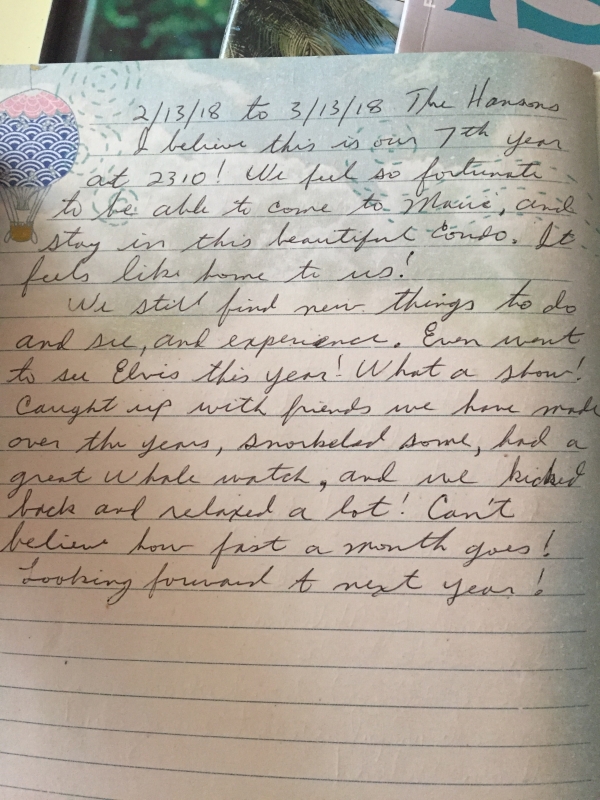 2/13/18 to 3/13/18 The Hansons
I believe this is our 7th year
at 2310! We feel so fortunate
to be able to come to Maui, and
stay in this beautiful condo. It
feels like home to us!
We still find new things to do
and see, and experience. Even went
to see Elvis this year! What a show!
Caught up with friends we have made
over the years, snorkeled some, had a
great whale watch, and we kicked
back and relaxed a lot! Can't
believe how fast a month goes!
Looking forward to next year!